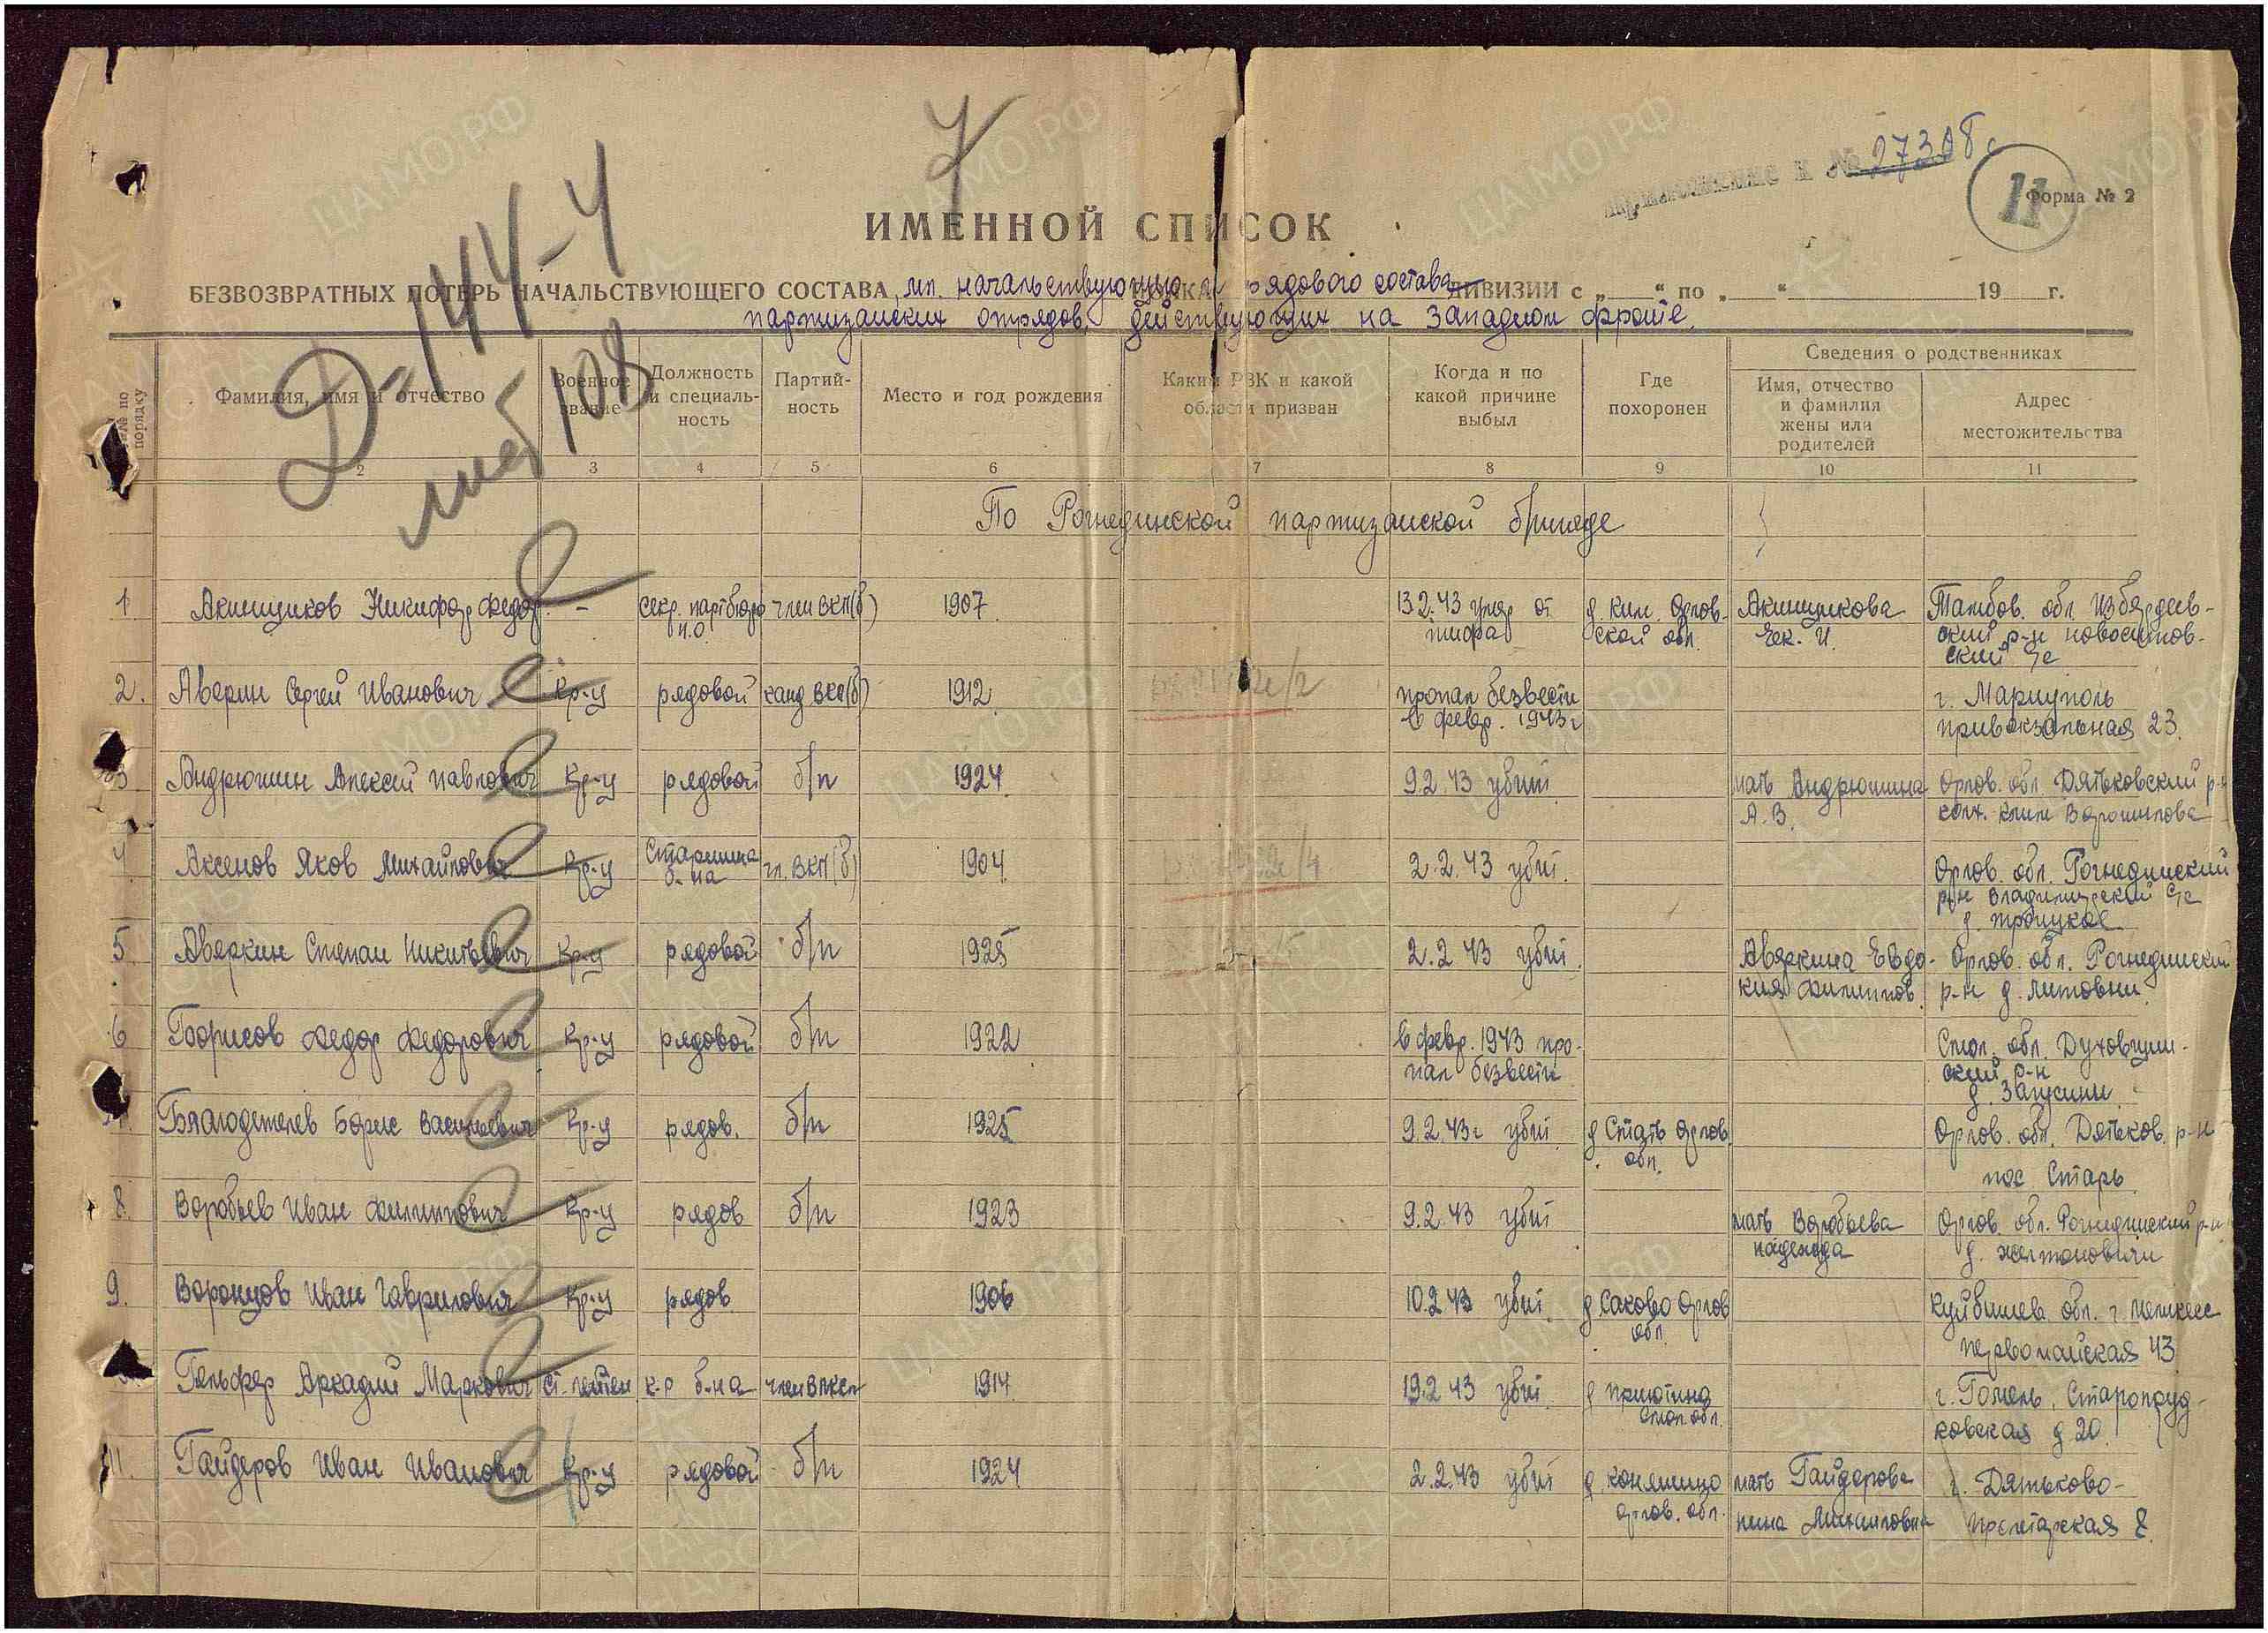 У
Приложение к № 27308с
11
Форма № 2
ИМЕННОЙ СПИСОК
БЕЗВОЗВРАТНЫХ ПОТЕРЬ НАЧАЛЬСТВУЮЩЕГО СОСТАВА, мл. начальствующего и рядового состава ДИВИЗИИ с „ “ по „ “ 19 г.
партизанских отрядов, действующих на Западном фронте.
Д-144-4
108
№№ по порядку
Фамилия, имя и отчество
Военное звание
Должность и специаль- ность
Партий- ность
Место и год рождения
Каким РВК и какой области призван
Когда и по какой причине выбыл
Где похоронен
Сведения о родственниках
Имя, отчество и фамилия жены или родителей
Адрес местожительства
2 3 4 5 6 7 8 9 10 11
По Рогнединской партизанской бригаде
1 Акинщиков Никифор Федор. - секр. партбюро член ВКП(б) 1907 13.2.43 умер от д. Ким. Орлов- Акинщикова Тамбов. обл. Избердеев-
п.о. тифа ской обл. Еек. И. ский р-н новоситов-
ский с/с
2. Аверин Сергей Иванович Кр-ц рядовой канд ВКП(б) 1912 пропал безвести г. Мариуполь
в февр. 1943 г привокзальная 23.
3 Андрюшин Алексей Павлович Кр-ц рядовой б/п 1924 9.2.43 убит мать Андрюшина Орлов. обл. Дятьковский р-н
А.В. колх. Клим Ворошилова
4 Аксенов Яков Михайлович Кр-ц Старшина чл. ВКП(б) 1904 2.2.43 убит. Орлов. обл. Рогнединский
б-на р-н Владимирский с/с
д. Троицкое
5 Аверкин Степан Никитьевич Кр-ц рядовой б/п 1925 2.2.43 убит. Авяркина Евдо- Орлов. обл. Рогнединский
кия Филиппов. р-н д. Литовни
6 Борисов Федор Федорович Кр-ц рядовой б/п 1922 в февр. 1943 про- Смол. обл. Духовщин-
пал безвести ский р-н
д. Загусини
Благодетелев Борис Васильевич Кр-ц рядов. б/п 1925 9.2.43г убит. д Старь Орлов Орлов. обл. Дятьков. р-н
обл. пос Старь
8. Воробьев Иван Филиппович Кр-ц рядов б/п 1923 9.2.43 убит мать Воробьева Орлов. обл. Рогнединский р-н
надежда д. Желтоновичи
9. Воронцов Иван Гаврилович Кр-ц рядов 1906 10.2.43 убит. д Саково Орлов Куйбышев. обл. г. Мелекес
обл. первомайская 43
Гельфер Аркадий Маркович ст. лейтен к-р б-на член ВЛКСМ 1914 19.2.43 убит. д Приютино г. Гомель, Старопруд-
Смол. обл. ковская д 20.
11. Гайдеров Иван Иванович Кр-ц рядовой б/п 1924 2.2.43 убит д. Коняшино мать Гайдерова г. Дятьково-
орлов. обл. нина Михаиловна Пролетарская 8